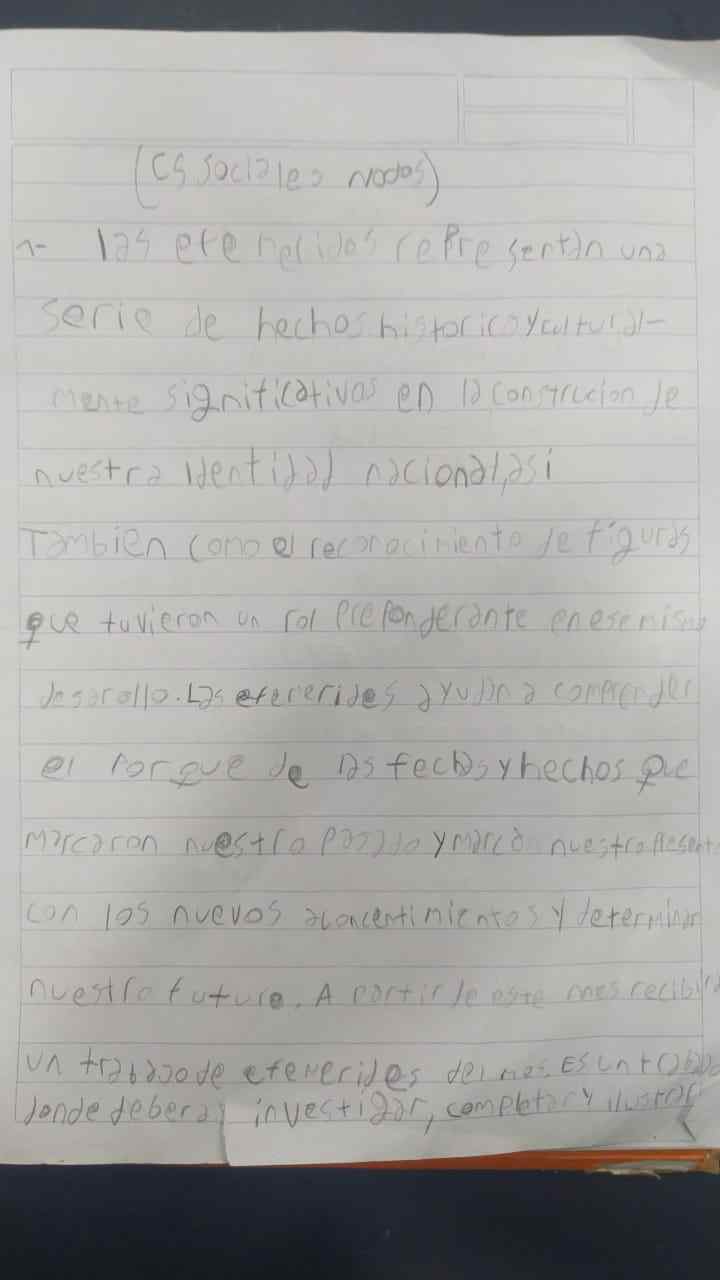 (CS sociales nodos)
1- las efemeridos representan una
serie de hechos historico y cultural-
mente significativos en la construcion de
nuestra identidad nacional, asi
Tambien como el reconocimiento de figuras
que tuvieron un rol preponderante en ese mismo
desarollo. Las efemerides ayudan a comprender
el porque de las fechas y hechos que
marcaron nuestro pasado y marcan nuestro present
con los nuevos aconcentimientos y determinan
nuestro futuro. A partir de este mes recibira
un trabajo de efemerides del mes. ES un trabajo
donde deberas investigar, completar y ilustrar